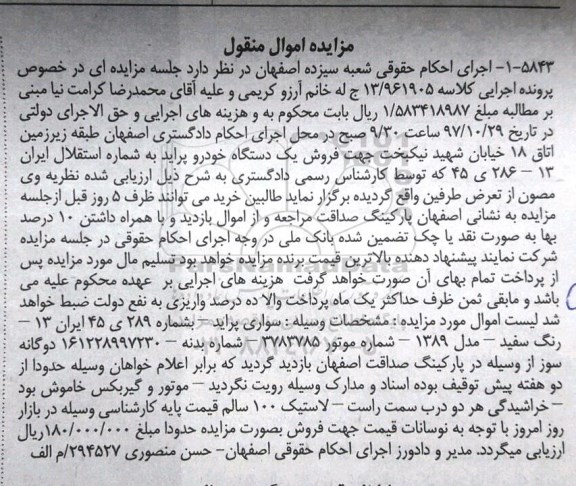 مزایده اموال منقول
۵۸۴۳-۱- اجرای احکام حقوقی شعبه سیزده اصفهان در نظر دارد جلسه مزایده ای در خصوص
پرونده اجرایی کلاسه ۱۳/۹۶۱۹۰۵ ج له خانم آرزو کریمی و علیه آقای محمدرضا کرامت نیا مبنی
بر مطالبه مبلغ ۱/۵۸۳۴۱۸۹۸۷ ریال بابت محکوم به و هزینه های اجرایی و حق الاجرای دولتی
در تاریخ ۹۷/۱۰/۲۹ ساعت ۹/۳۰ صبح در محل اجرای احکام دادگستری اصفهان طبقه زیرزمین
اتاق ۱۸ خیابان شهید نیکبخت جهت فروش یک دستگاه خودرو پراید به شماره استقلال ایران
۱۳ – ۲۸۶ ی ۴۵ که توسط کارشناس رسمی دادگستری به شرح ذیل ارزیابی شده نظریه وی
مصون از تعرض طرفین واقع گردیده برگزار نماید طالبین خرید می توانند ظرف ۵ روز قبل ازجلسه
مزایده به نشانی اصفهان پارکینگ صداقت مراجعه و از اموال بازدید و با همراه داشتن ۱۰ درصد
بها به صورت نقد یا چک تضمین شده بانک ملی در وجه اجرای احکام حقوقی در جلسه مزایده
شرکت نمایند پیشنهاد دهنده بالاترین قیمت برنده مزایده خواهد بود تسلیم مال مورد مزایده پس
از پرداخت تمام بهای آن صورت خواهد گرفت هزینه های اجرایی بر عهده محکوم علیه می
باشد و مابقی ثمن ظرف حداکثر یک ماه پرداخت والا ده درصد واریزی به نفع دولت ضبط خواهد
شد لیست اموال مورد مزایده : مشخصات وسیله : سواری پراید – بشماره ۲۸۹ ی ۴۵ ایران ۱۳ –
رنگ سفید – مدل ۱۳۸۹ – شماره موتور ۳۷۸۳۷۸۵ – شماره بدنه – ۱۶۱۲۲۸۹۹۷۲۳۰ دوگانه
سوز از وسیله در پارکینگ صداقت اصفهان بازدید گردید که برابر اعلام خواهان وسیله حدودا از
دو هفته پیش توقیف بوده اسناد و مدارک وسیله رویت نگردید – موتور و گیربکس خاموش بود
– خراشیدگی هر دو درب سمت راست – لاستیک ۱۰۰ سالم قیمت پایه کارشناسی وسیله در بازار
روز امروز با توجه به نوسانات قیمت جهت فروش بصورت مزایده حدودا مبلغ ۱۸۰/۰۰۰/۰۰۰ریال
ارزیابی میگردد. مدیر و دادورز اجرای احکام حقوقی اصفهان- حسن منصوری ۲۹۴۵۲۷/م الف